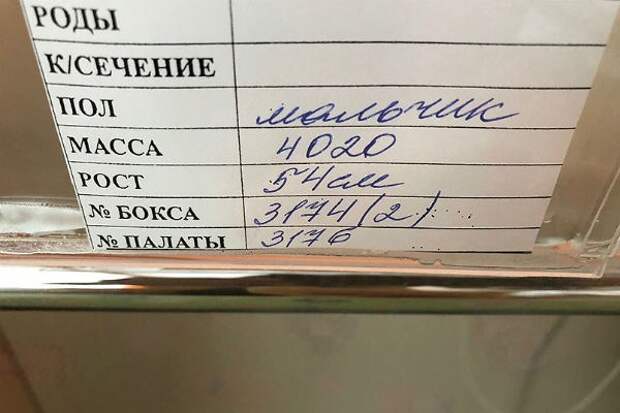 РОДЫ
К/СЕЧЕНИЕ
ПОЛ мальчик
МАССА 4020
РОСТ 54см
№ БОКСА 3174(2)
№ ПАЛАТЫ 3176